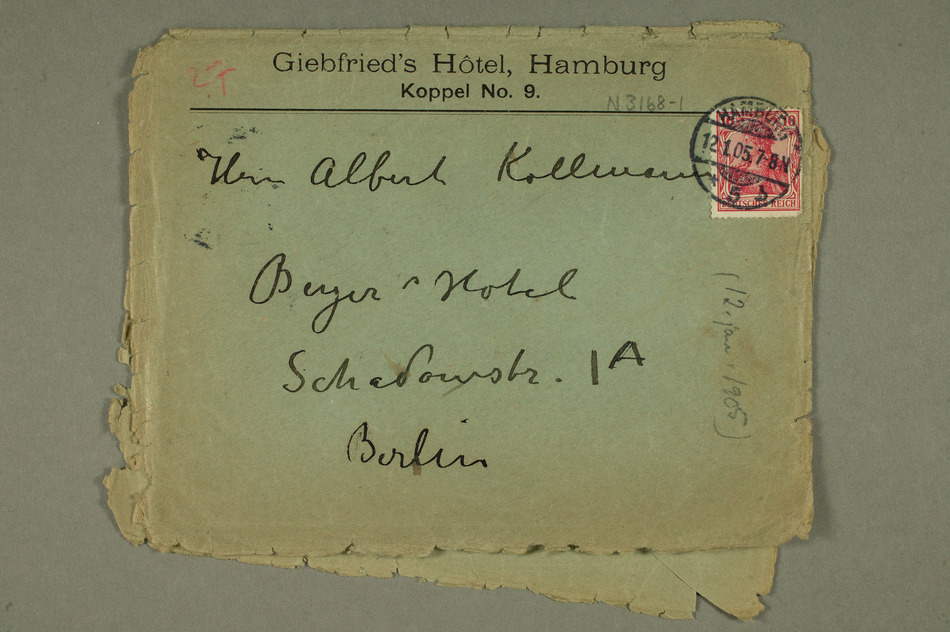 Giebfried's Hôtel, Hamburg
Koppel No. 9.
N 3168-1
HAMBURG
12.1.05.7-8N
5
10
DEUTSCHES REICH
Herrn Albert Kollmann
Beyer's Hotel
Schadowstr. 1A
Berlin
(12. jan. 1905)